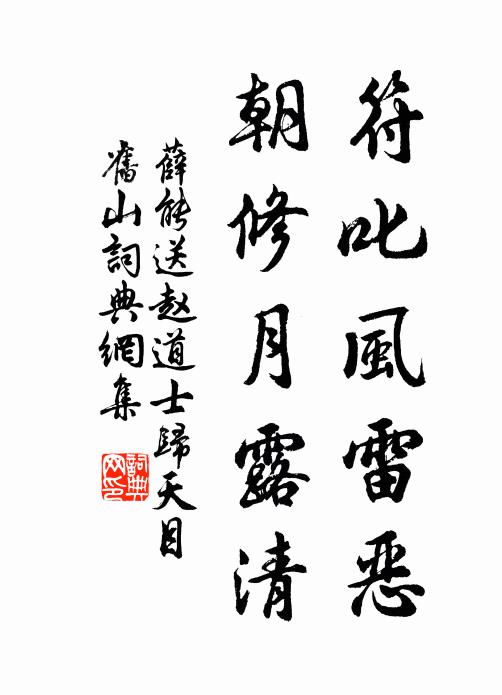 符叱風雷恶
朝修月露清
薛能送赵道士歸天目
舊山詞典網集
詞典
网印